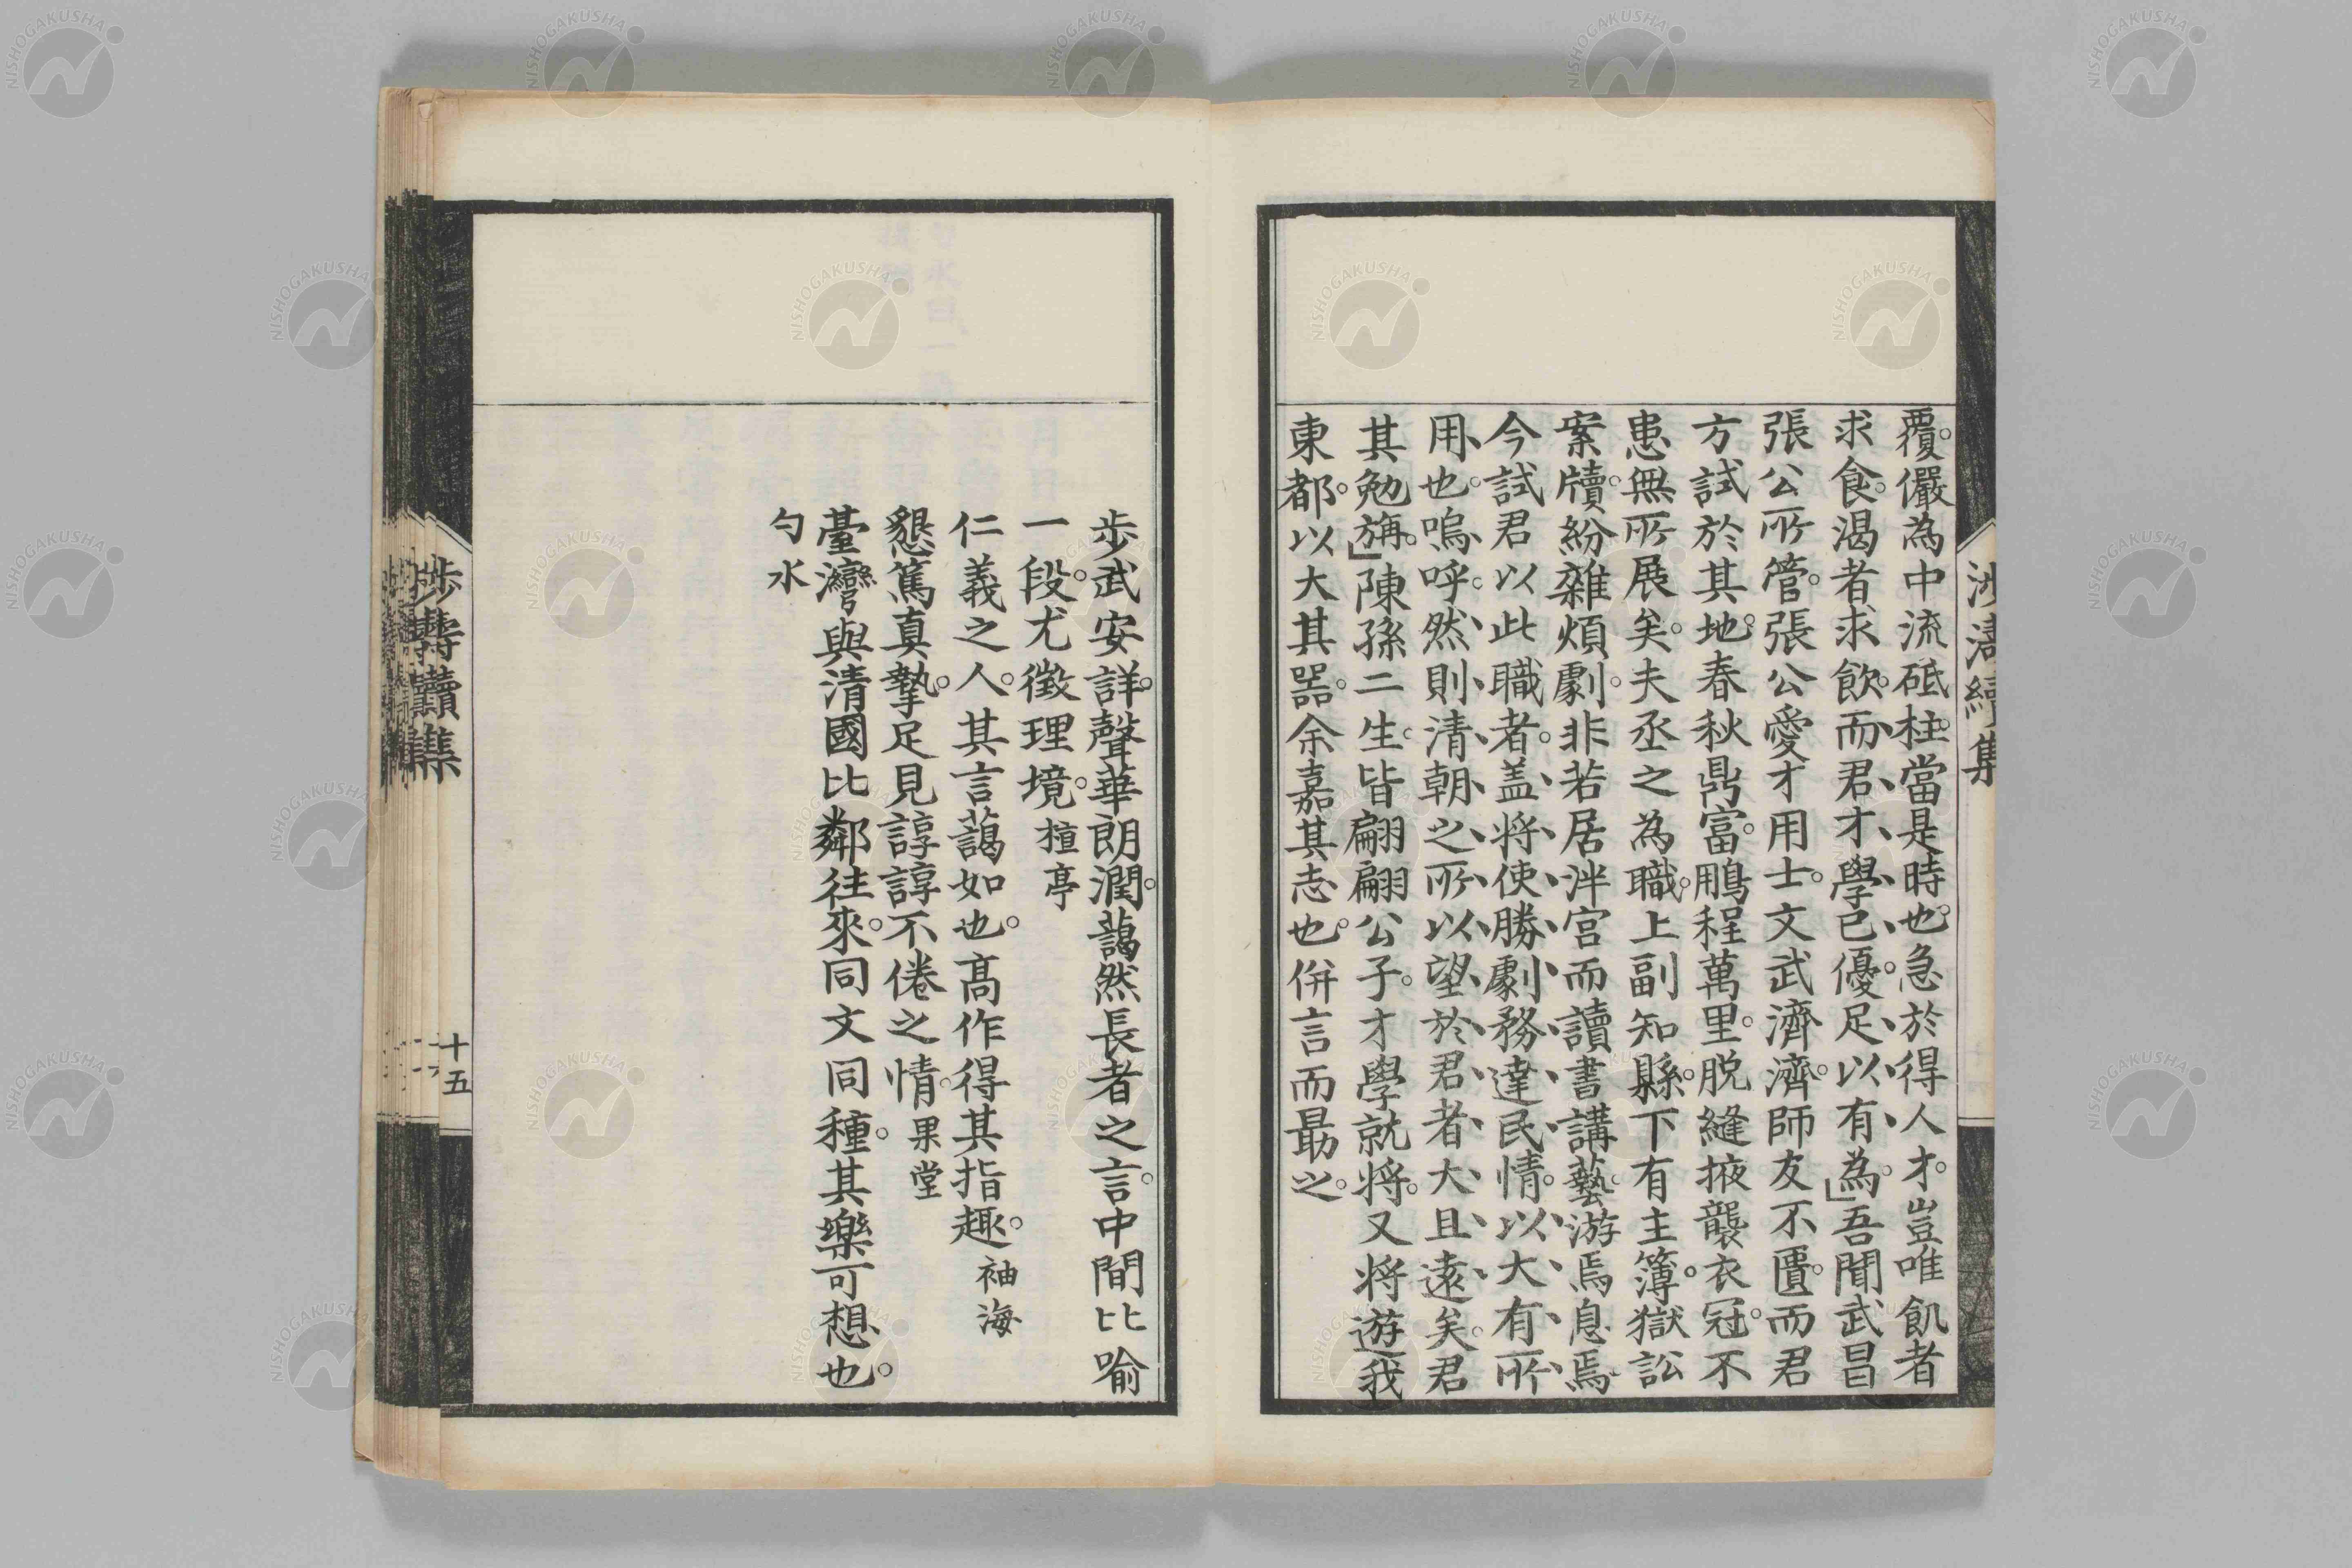 覆。儼為中流砥柱。當是時也。急於得人才。豈唯飢者
求食。渴者求飲。而君才學已優。足以有為。」吾聞武昌
張公所管。張公愛才用士。文武濟濟。師友不匱。而君
方試於其地。春秋鼎富。鵬程萬里。脱縫掖襲衣冠。不
患無所展矣。夫丞之為職。上副知縣。下有主簿。獄訟
案牘。紛雜煩劇。非若居泮宮而讀書講藝。游焉息焉
今試君以此職者。盖将使勝劇務達民情。以大有所
用也。嗚呼。然則清朝之所以望於君者大且遠矣。君
其勉旃。」陳孫二生。皆翩翩公子。才學就将。又将遊我
東都。以大其器。余嘉其志也。併言而勗之。
步武安詳。聲華朗潤。藹然長者之言。中間比喻
一段。尤徵理境。 葅亭
仁義之人。其言藹如也。高作得其指趣。 袖海
懇篤真摯。足見諄諄不倦之情。 果堂
臺灣與清國比鄰往來。同文同種。其樂可想也。
勺水
十五
NISHOGAKUSHA